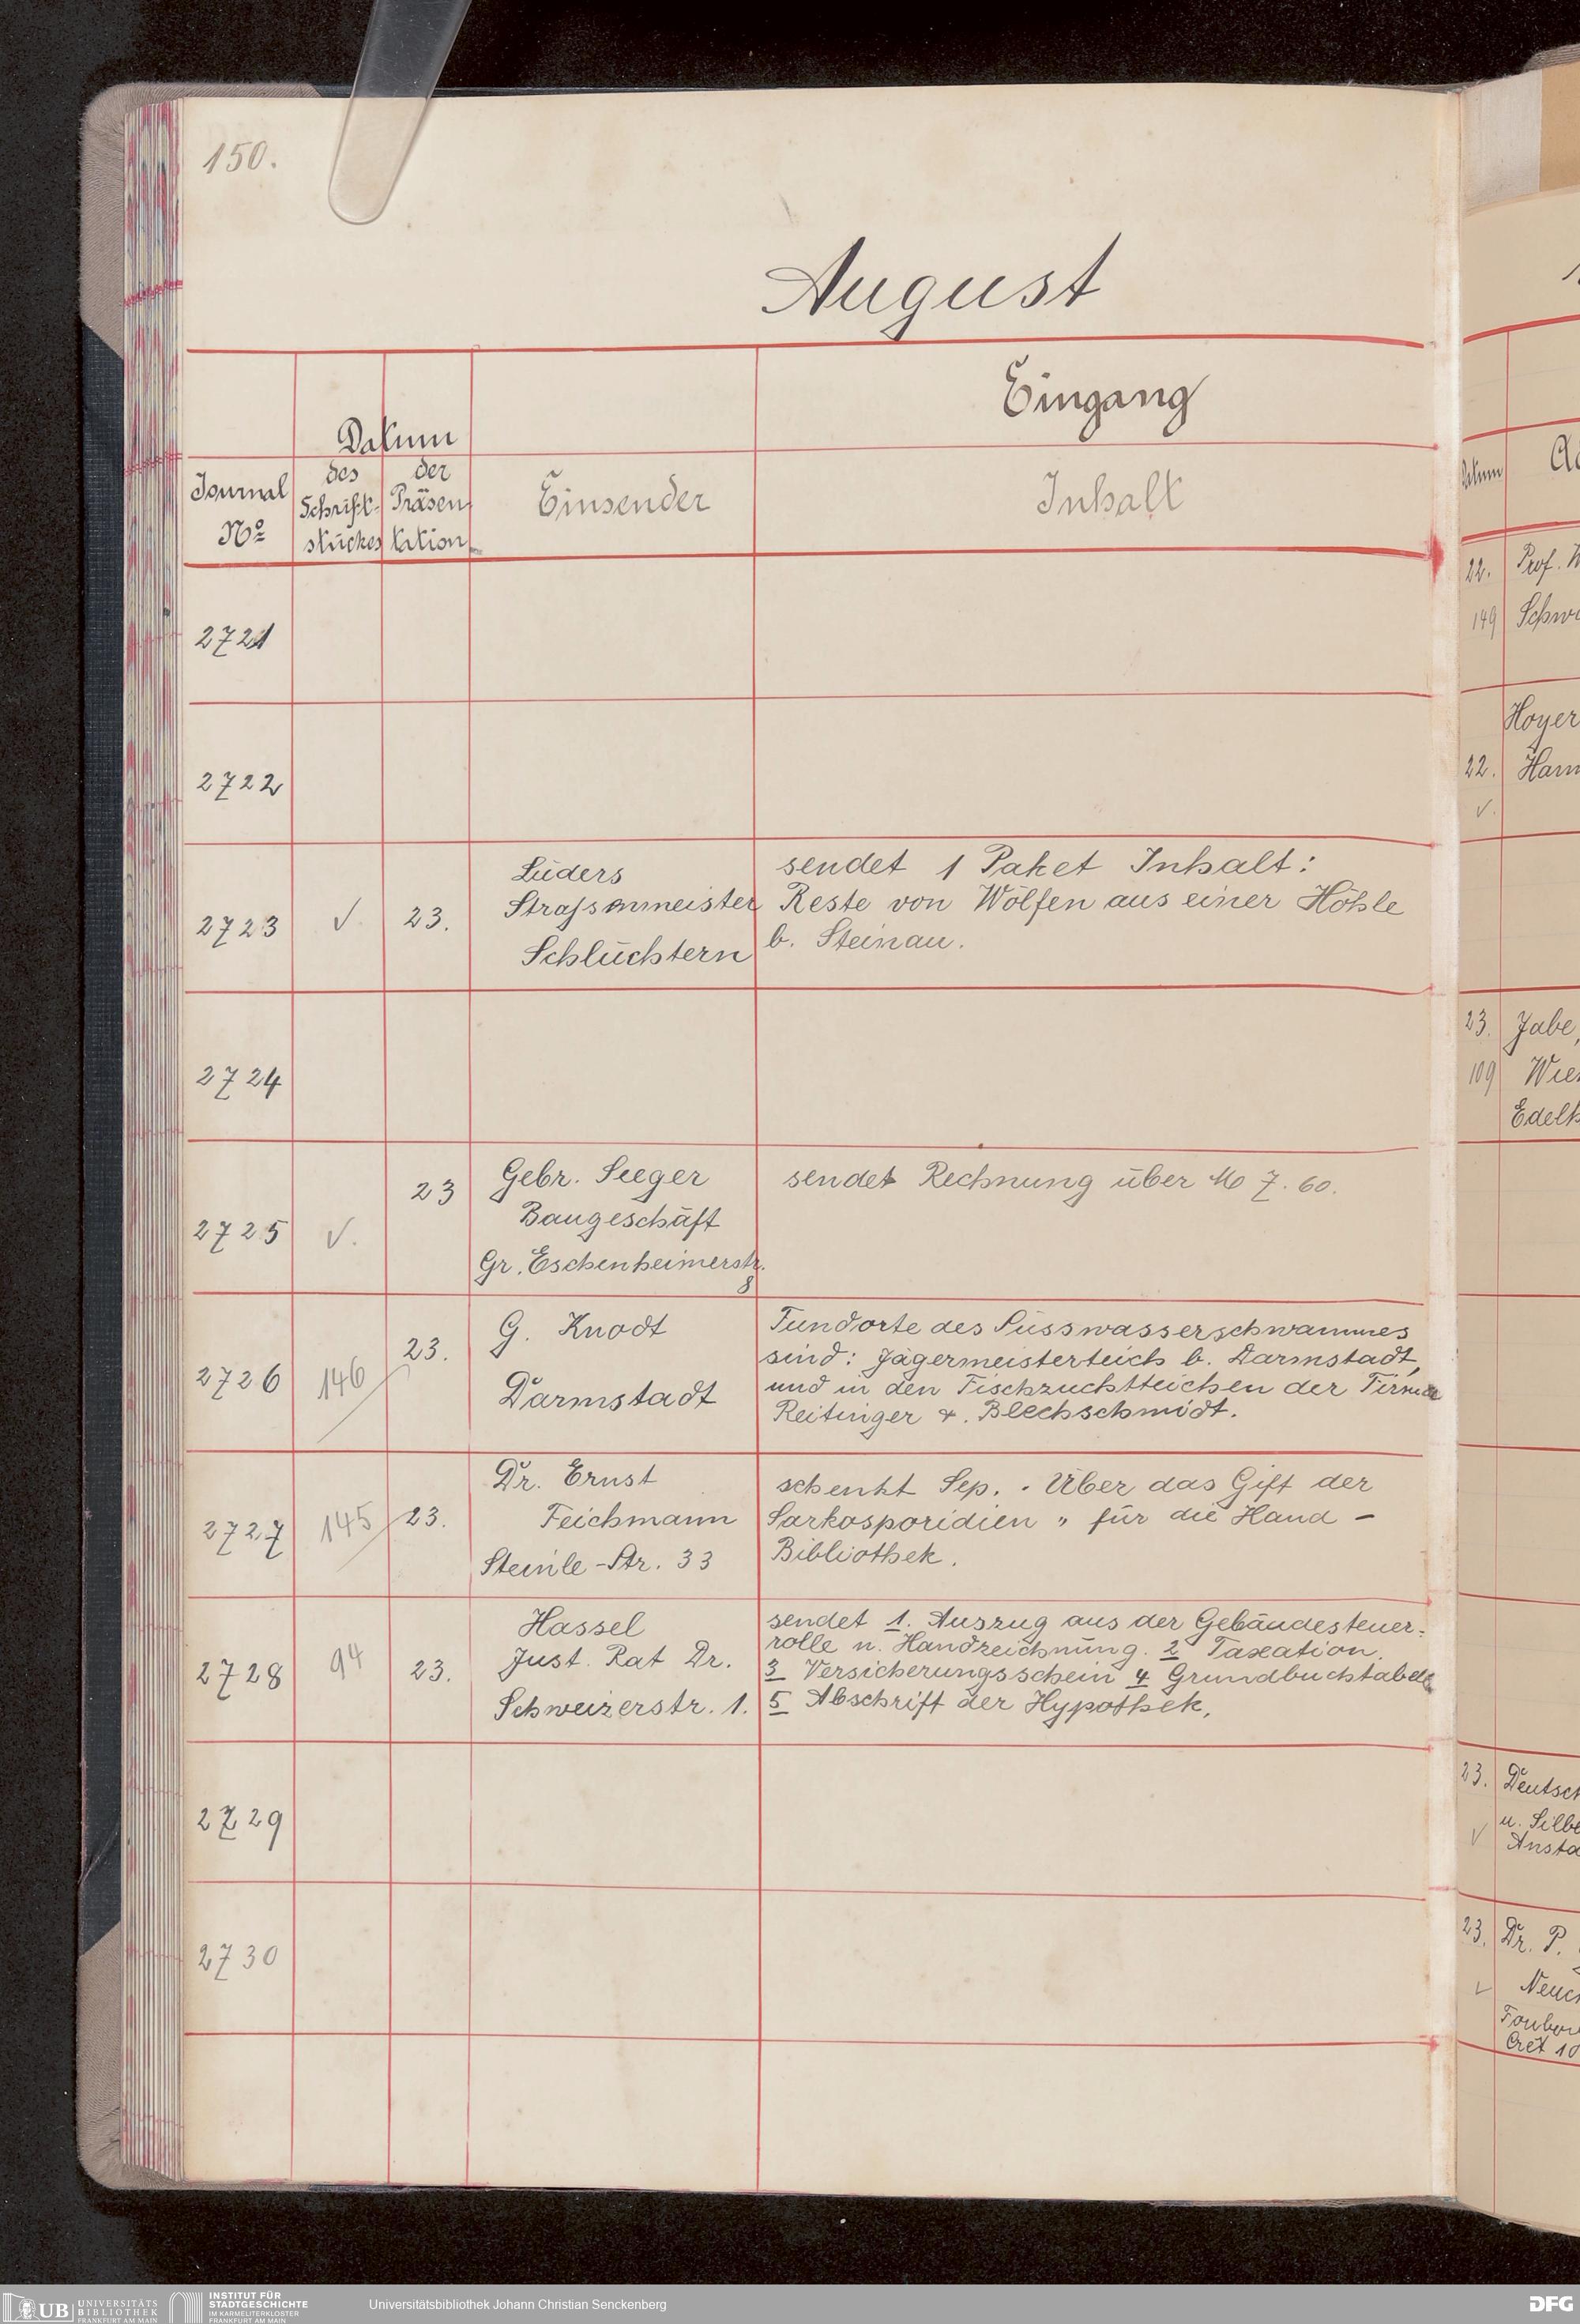 150.
August
Eingang
Datum
Journal No
des Schriftstückes
der Präsentation
Einsender
Inhalt
2721
2722
2723 √ 23.
Lüders
Strassenmeister
Schlüchtern
sendet 1 Paket Inhalt:
Reste von Wölfen aus einer Höhle
b. Steinau.
2724
2725 √. 23
Gebr. Seeger
Baugeschäft
Gr. Eschenheimerstr.
8
sendet Rechnung über M 7.60.
2726 146 23.
G. Knodt
Darmstadt
Fundorte des Süsswasserschwammes
sind: Jägermeisterteich b. Darmstadt,
und in den Fischzuchtteichen der Firma
Reitinger &. Blechschmidt.
2727 145 23.
Dr. Ernst
Teichmann
Steinle-Str. 33
schenkt Sep. „Über das Gift der
Sarkosporidien" für die Hand-
Bibliothek.
2728 94 23.
Hassel
Just. Rat Dr.
Schweizerstr. 1.
sendet 1. Auszug aus der Gebäudesteuer-
rolle n. Handzeichnung. 2 Taxation.
3 Versicherungsschein 4 Grundbuchtabelle
5 Abschrift der Hypothek.
2729
2730
22. Prof.
149
Hoyer
22.
√.
23.
109
23. Deutsch
u.
√
23. Dr. P.
√
10
UB UNIVERSITÄTS
BIBLIOTHEK
FRANKFURT AM MAIN
INSTITUT FÜR
STADTGESCHICHTE
IM KARMELITERKLOSTER
FRANKFURT AM MAIN
Universitätsbibliothek Johann Christian Senckenberg
DFG